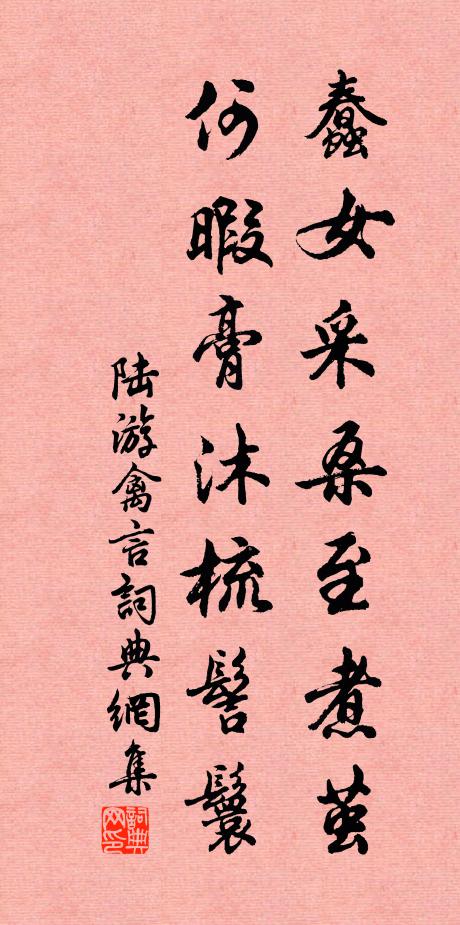 蠶女采桑至煮茧
何暇膏沐梳髻鬟
陆游禽言詞典網集
詞典网印